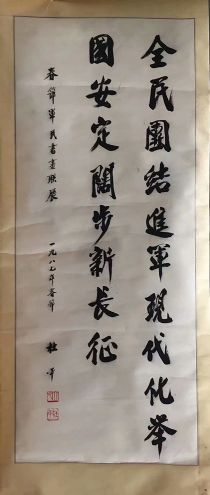 全民團結進軍現代化舉
國安定闊步新長征
春節軍民書畫聯展
一九八七年春節
杜平